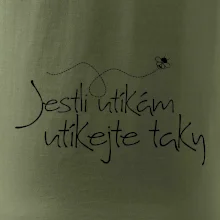 Jestli utíkám
utíkejte taky